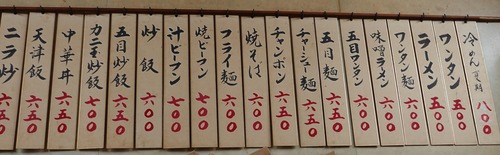 冷めん 夏期 八〇〇
ワンタン 五〇〇
ラーメン 五〇〇
ワンタン麺 六〇〇
味噌ラーメン 六〇〇
五目ワンタン 六〇〇
五目麺 六五〇
チャーシュー麺 六五〇
チャンポン 六五〇
焼そば 六〇〇
フライ麺 六〇〇
焼ビーフン 七〇〇
汁ビーフン 七〇〇
炒飯 六〇〇
五目炒飯 六五〇
カニ玉炒飯 七〇〇
中華丼 六五〇
天津飯 六五〇
ニラ炒